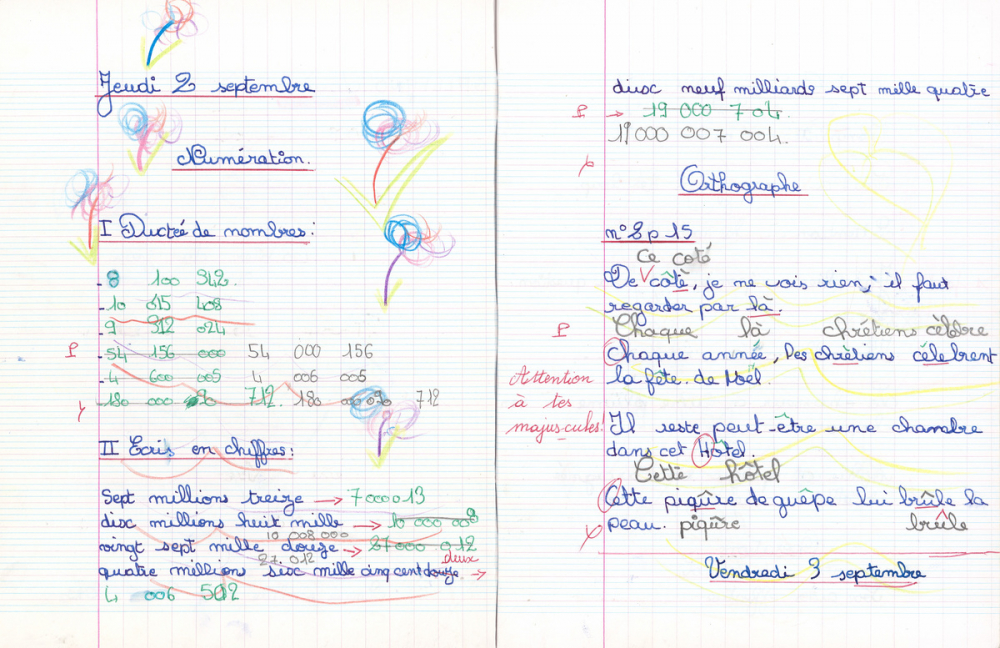 Jeudi 2 septembre
Numération.
I Dictée de nombres :
8 100 342
10 015 408
9 312 024
54 156 000 54 000 156
4 600 005 4 006 005
180 000 90 712. 180 000 090 712
II Ecris en chiffres :
Sept millions treize → 7000013
disc millions huit mille → 10 000 008
10 008 000
vingt sept mille douze → 27000 012
27. 012
deux
quatre millions sisc mille cinq cent douze →
4 006 502
disc neuf milliards sept mille quatre
→ 19 000 704.
19 000 007 004.
Orthographe
n°8 p 15
Ce coté
De côtè, je ne vois rien, il faut
regarder par là.
Chaque là chrétiens célèbre
Chaque année, les chrètiens célebrent
Attention
à tes
majuscules!
la fête de Noël.
Il reste peut-être une chambre
dans cet Hôtel.
Cette hôtel
Cette piqûre de guêpe lui brûle la
peau. piqûre brûle
Vendredi 3 septembre